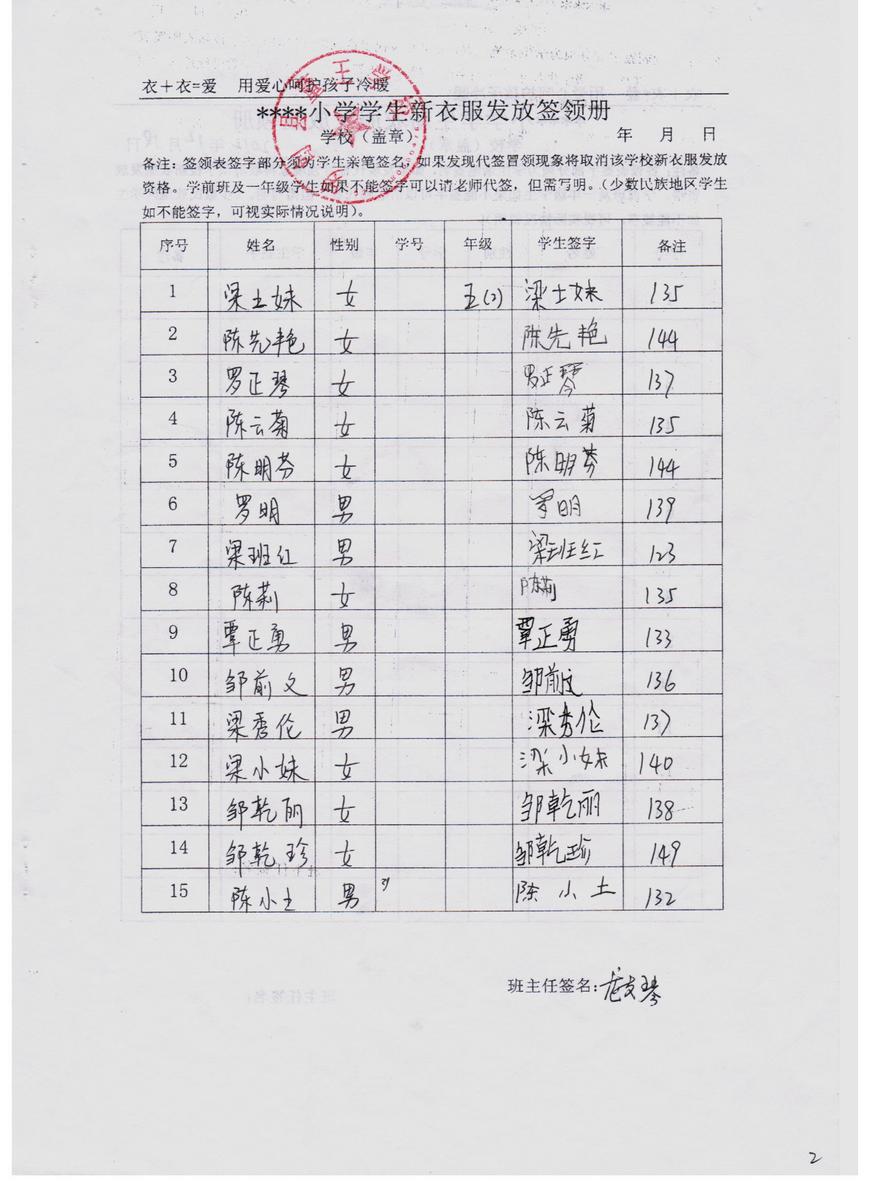 衣+衣=爱 用爱心呵护孩子冷暖
****小学学生新衣服发放签领册
学校（盖章） 年 月 日
备注：签领表签字部分须为学生亲笔签名，如果发现代签冒领现象将取消该学校新衣服发放
资格。学前班及一年级学生如果不能签字可以请老师代签，但需写明。（少数民族地区学生
如不能签字，可视实际情况说明）。
序号 姓名 性别 学号 年级 学生签字 备注
1 梁士妹 女 五(2) 梁士妹 135
2 陈先艳 女 陈先艳 144
3 罗正琴 女 罗正琴 137
4 陈云菊 女 陈云菊 135
5 陈明芬 女 陈明芬 144
6 罗明 男 罗明 139
7 梁班红 男 梁班红 123
8 陈莉 女 陈莉 135
9 覃正勇 男 覃正勇 133
10 邹前文 男 邹前文 136
11 梁秀伦 男 梁秀伦 137
12 梁小妹 女 梁小妹 140
13 邹乾丽 女 邹乾丽 138
14 邹乾珍 女 邹乾珍 149
15 陈小土 男 陈小土 132
班主任签名：
2